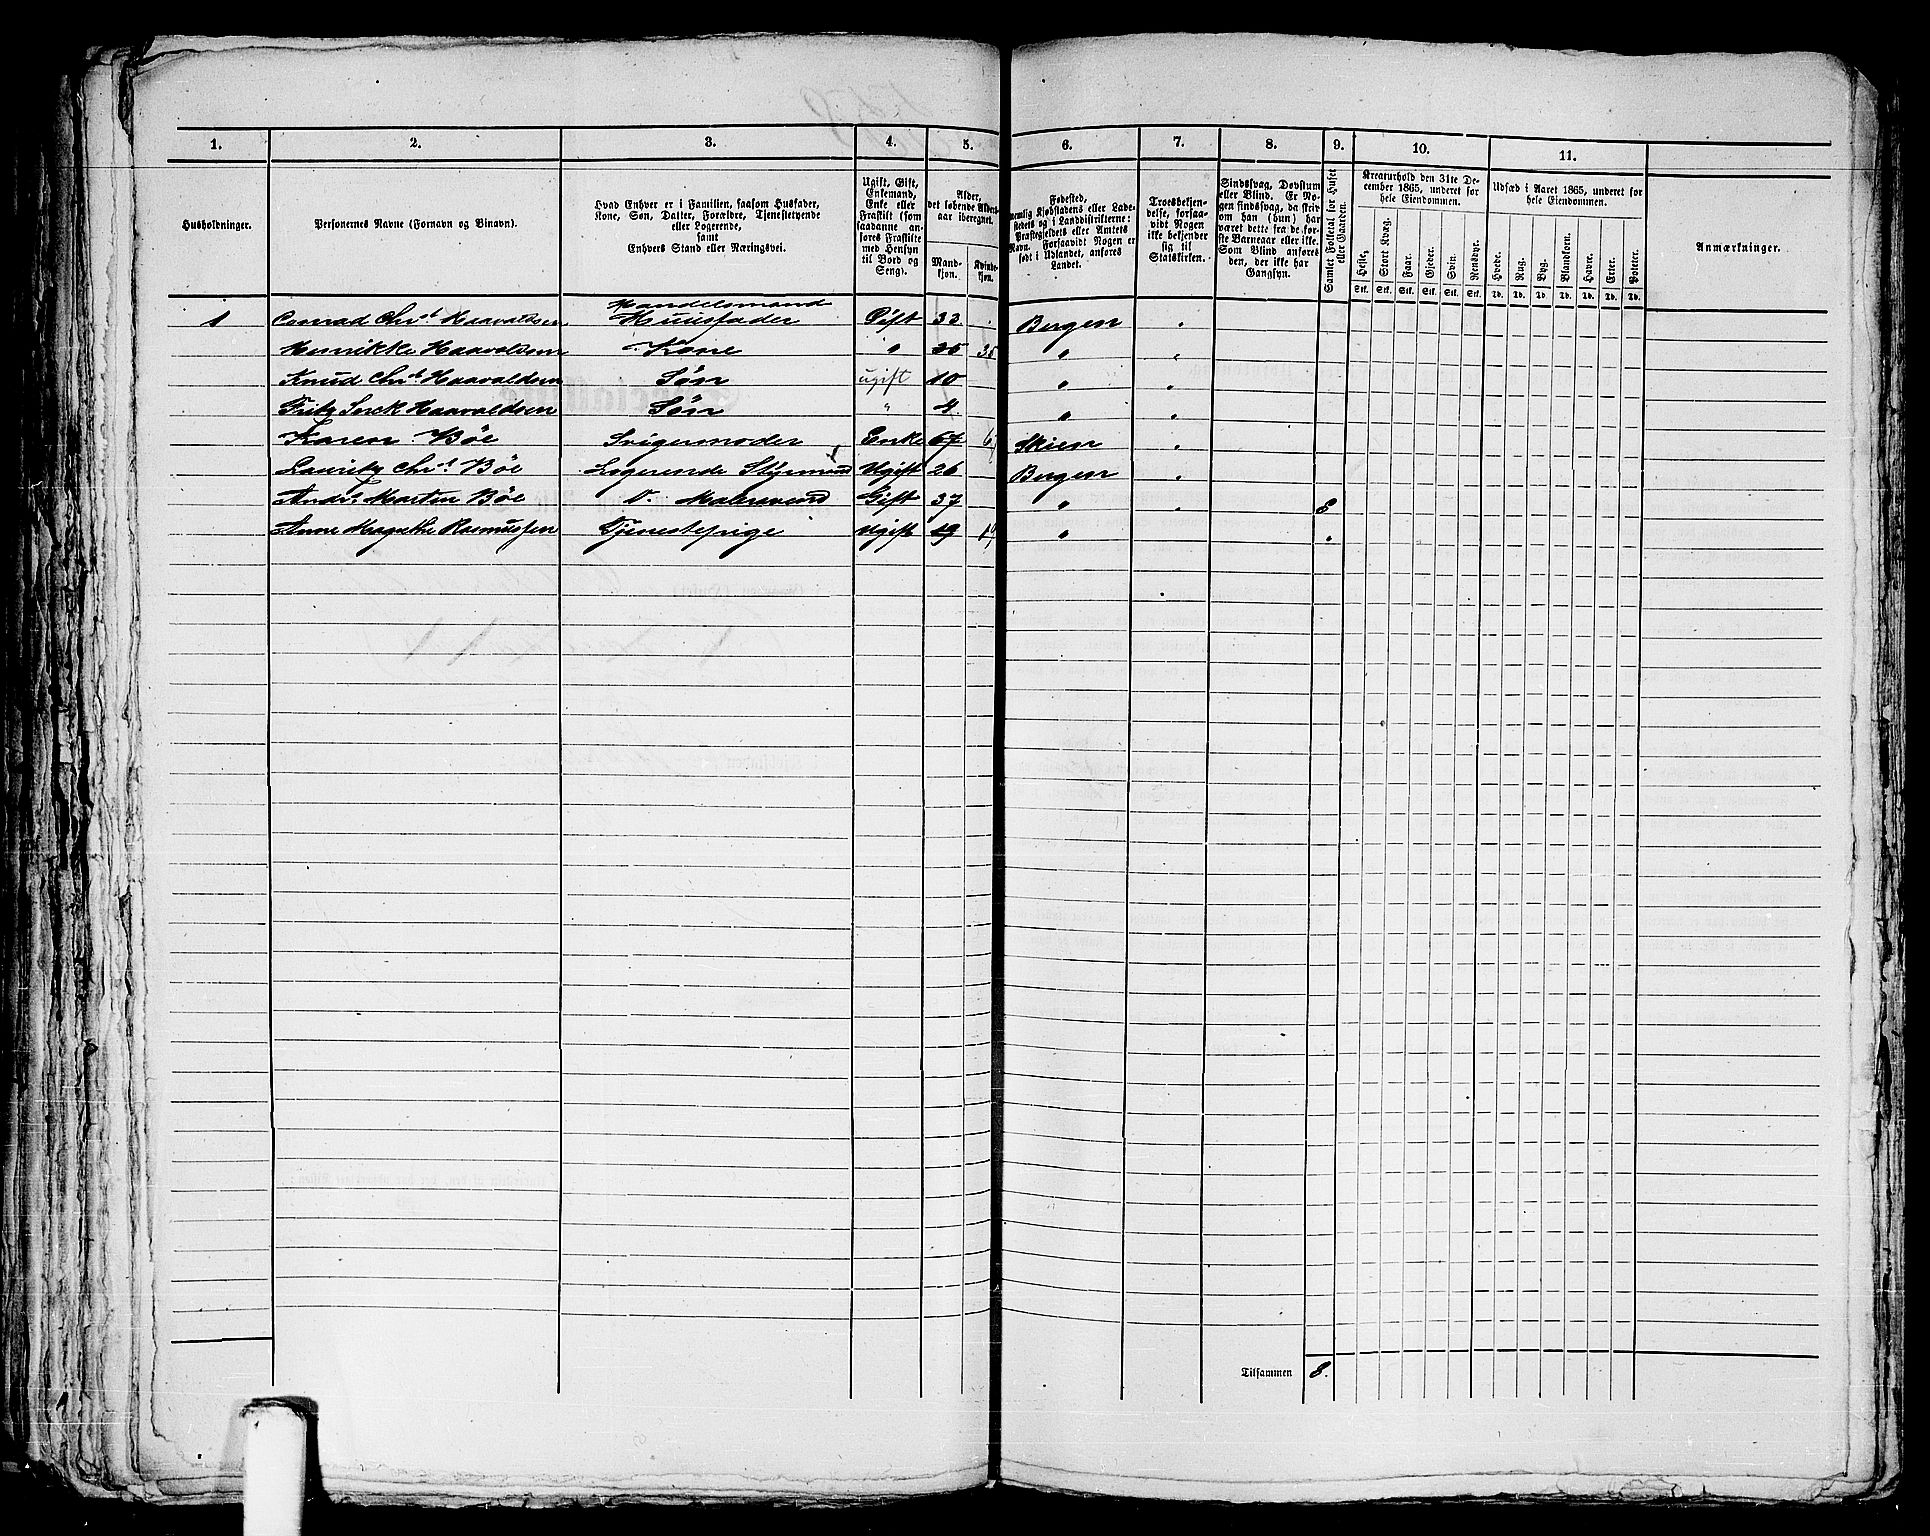 1. 2. 3. 4. 5. 6. 7. 8. 9. 10. 11.
Husholdninger.
Personernes Navne (Fornavn og Binavn).
Hvad Enhver er i Familien, saasom Husfader,
Kone, Søn, Datter, Forældre, Tjenestetyende
eller Logerende,
samt
Enhvers Stand eller Næringsvei.
Ugift, Gift,
Enkemand,
Enke eller
Fraskilt (som
saadanne an-
føres Fraskilte
med Hensyn
til Bord og
Seng).
Alder,
det løbende Alders-
aar iberegnet.
Mand-
kjøn.
Kvinde-
kjøn.
Fødested,
nemlig Kjøbstadens eller Lade-
stedets og i Landdistrikterne:
Præstegjeldets eller Amtets
Navn. Forsaavidt Nogen er
født i Udlandet, anføres
Landet.
Troesbekjen-
delse, forsaa-
vidt Nogen
ikke bekjender
sig til
Statskirken.
Sindssvag, Døvstum
eller Blind. Er No-
gen sindssvag, da skriv
om han (hun) har
været dette fra de før-
ste Barneaar eller ikke.
Som Blind anføres
den, der ikke har
Gangsyn.
Samlet Folketal for Huset
eller Gaarden.
Kreaturhold den 31te De-
cember 1865, underet for
hele Eiendommen.
Heste, Stort Kvæg. Faar. Gjeder. Svin. Rensdyr.
Stk. Stk. Stk. Stk. Stk. Stk.
Udsæd i Aaret 1865, underet for
hele Eiendommen.
Hvede. Rug. Byg. Blandkorn. Havre. Erter. Poteter.
Td. Td. Td. Td. Td. Td. Td.
Anmærkninger.
Handelsmand
1 Conrad Chr. Haavaldsen Huusfader Gift 33 Bergen "
Henrikke Haavaldsen Kone " 35 35 " "
Knud Chr. Haavaldsen Søn ugift 10 " "
Fritz Haavaldsen Søn " 4 " "
Karen Bøe Svigermoder Enke 67 67 Skien "
Lauritz Chr. Bøe Logerende Styrmand Ugift 26 Bergen "
Andr. Martin Bøe Gift 37 " " 8
Anne Magrethe Rasmussen Tjenestepige Ugift 19 19 "
Tilsammen 8.